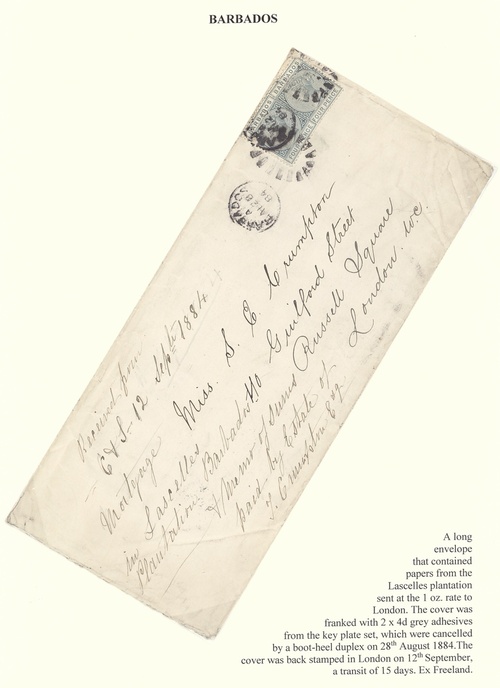 BARBADOS
BARBADOS
BARBADOS
FOUR PENCE
FOUR PENCE
BARBADOS
84
Miss. S. E. Crumpton
40 Guilford Street
Russell Square
London. W.C.
Received from
C & S - 12 Sept 1884
Mortgage
in Lascelles
Plantation Barbados
& Memo of sums
paid by Estate of
Crumpton Esq
A long
envelope
that contained
papers from the
Lascelles plantation
sent at the 1 oz. rate to
London. The cover was
franked with 2 x 4d grey adhesives
from the key plate set, which were cancelled
by a boot-heel duplex on 28th August 1884.The
cover was back stamped in London on 12th September,
a transit of 15 days. Ex Freeland.